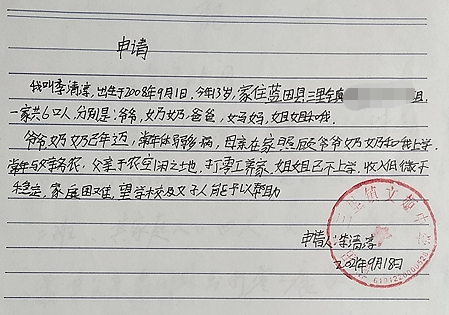 申请
我叫李清淳,出生于2008年9月1日,今年13岁,家住蓝田县三里镇
组,
一家共6口人,分别是:爷爷,奶奶,爸爸,妈妈,姐姐和我。
爷爷奶奶已年迈,常年体弱多病,母亲在家照顾爷爷奶奶和我上学,
常年务农,父亲于农空闲之地,打零工养家,姐姐已不上学,收入低微不
稳定,家庭困难,望学校及文子人能予以帮助
申请人:李清淳
2021年9月18日
三里镇文姬中